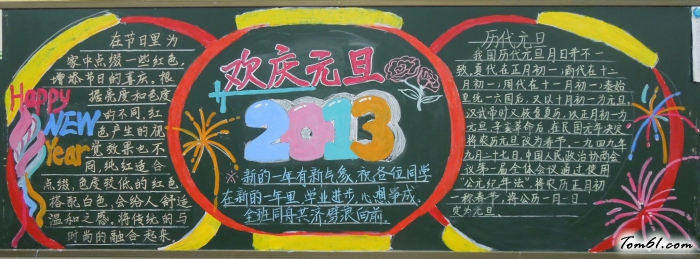 在节日里为
家中点缀一些红色,
增添节日的喜庆,根
据亮度和色度
的不同,红
色产生的视
觉效果也不
同,纯红适合
点缀,色度较低的红色
搭配白色,会给人舒适
温和之感,将传统的与
时尚的融合起来。
Happy
NEW
Year
欢庆元旦
2013
新的一年有新气象,祝各位同学
在新的一年里,学业进步,心想学成,
全班同舟共济,努力向前。
历代元旦
我国历代元旦月日并不一
致,夏代在正月初一,商代在十二
月初一,周代在十一月初一,秦始
皇统一六国后,又以十月初一为元旦,
汉武帝时又恢复夏历,以正月初一为
元旦,辛亥革命后,在民国元年决定
将农历元旦改为春节。一九四九
年九月二十七日,中国人民政治协商会
议第一届全体会议通过使用
“公元纪年法”,将农历正月初
一称春节,将公历一月一日
定为元旦。
Tom61.com